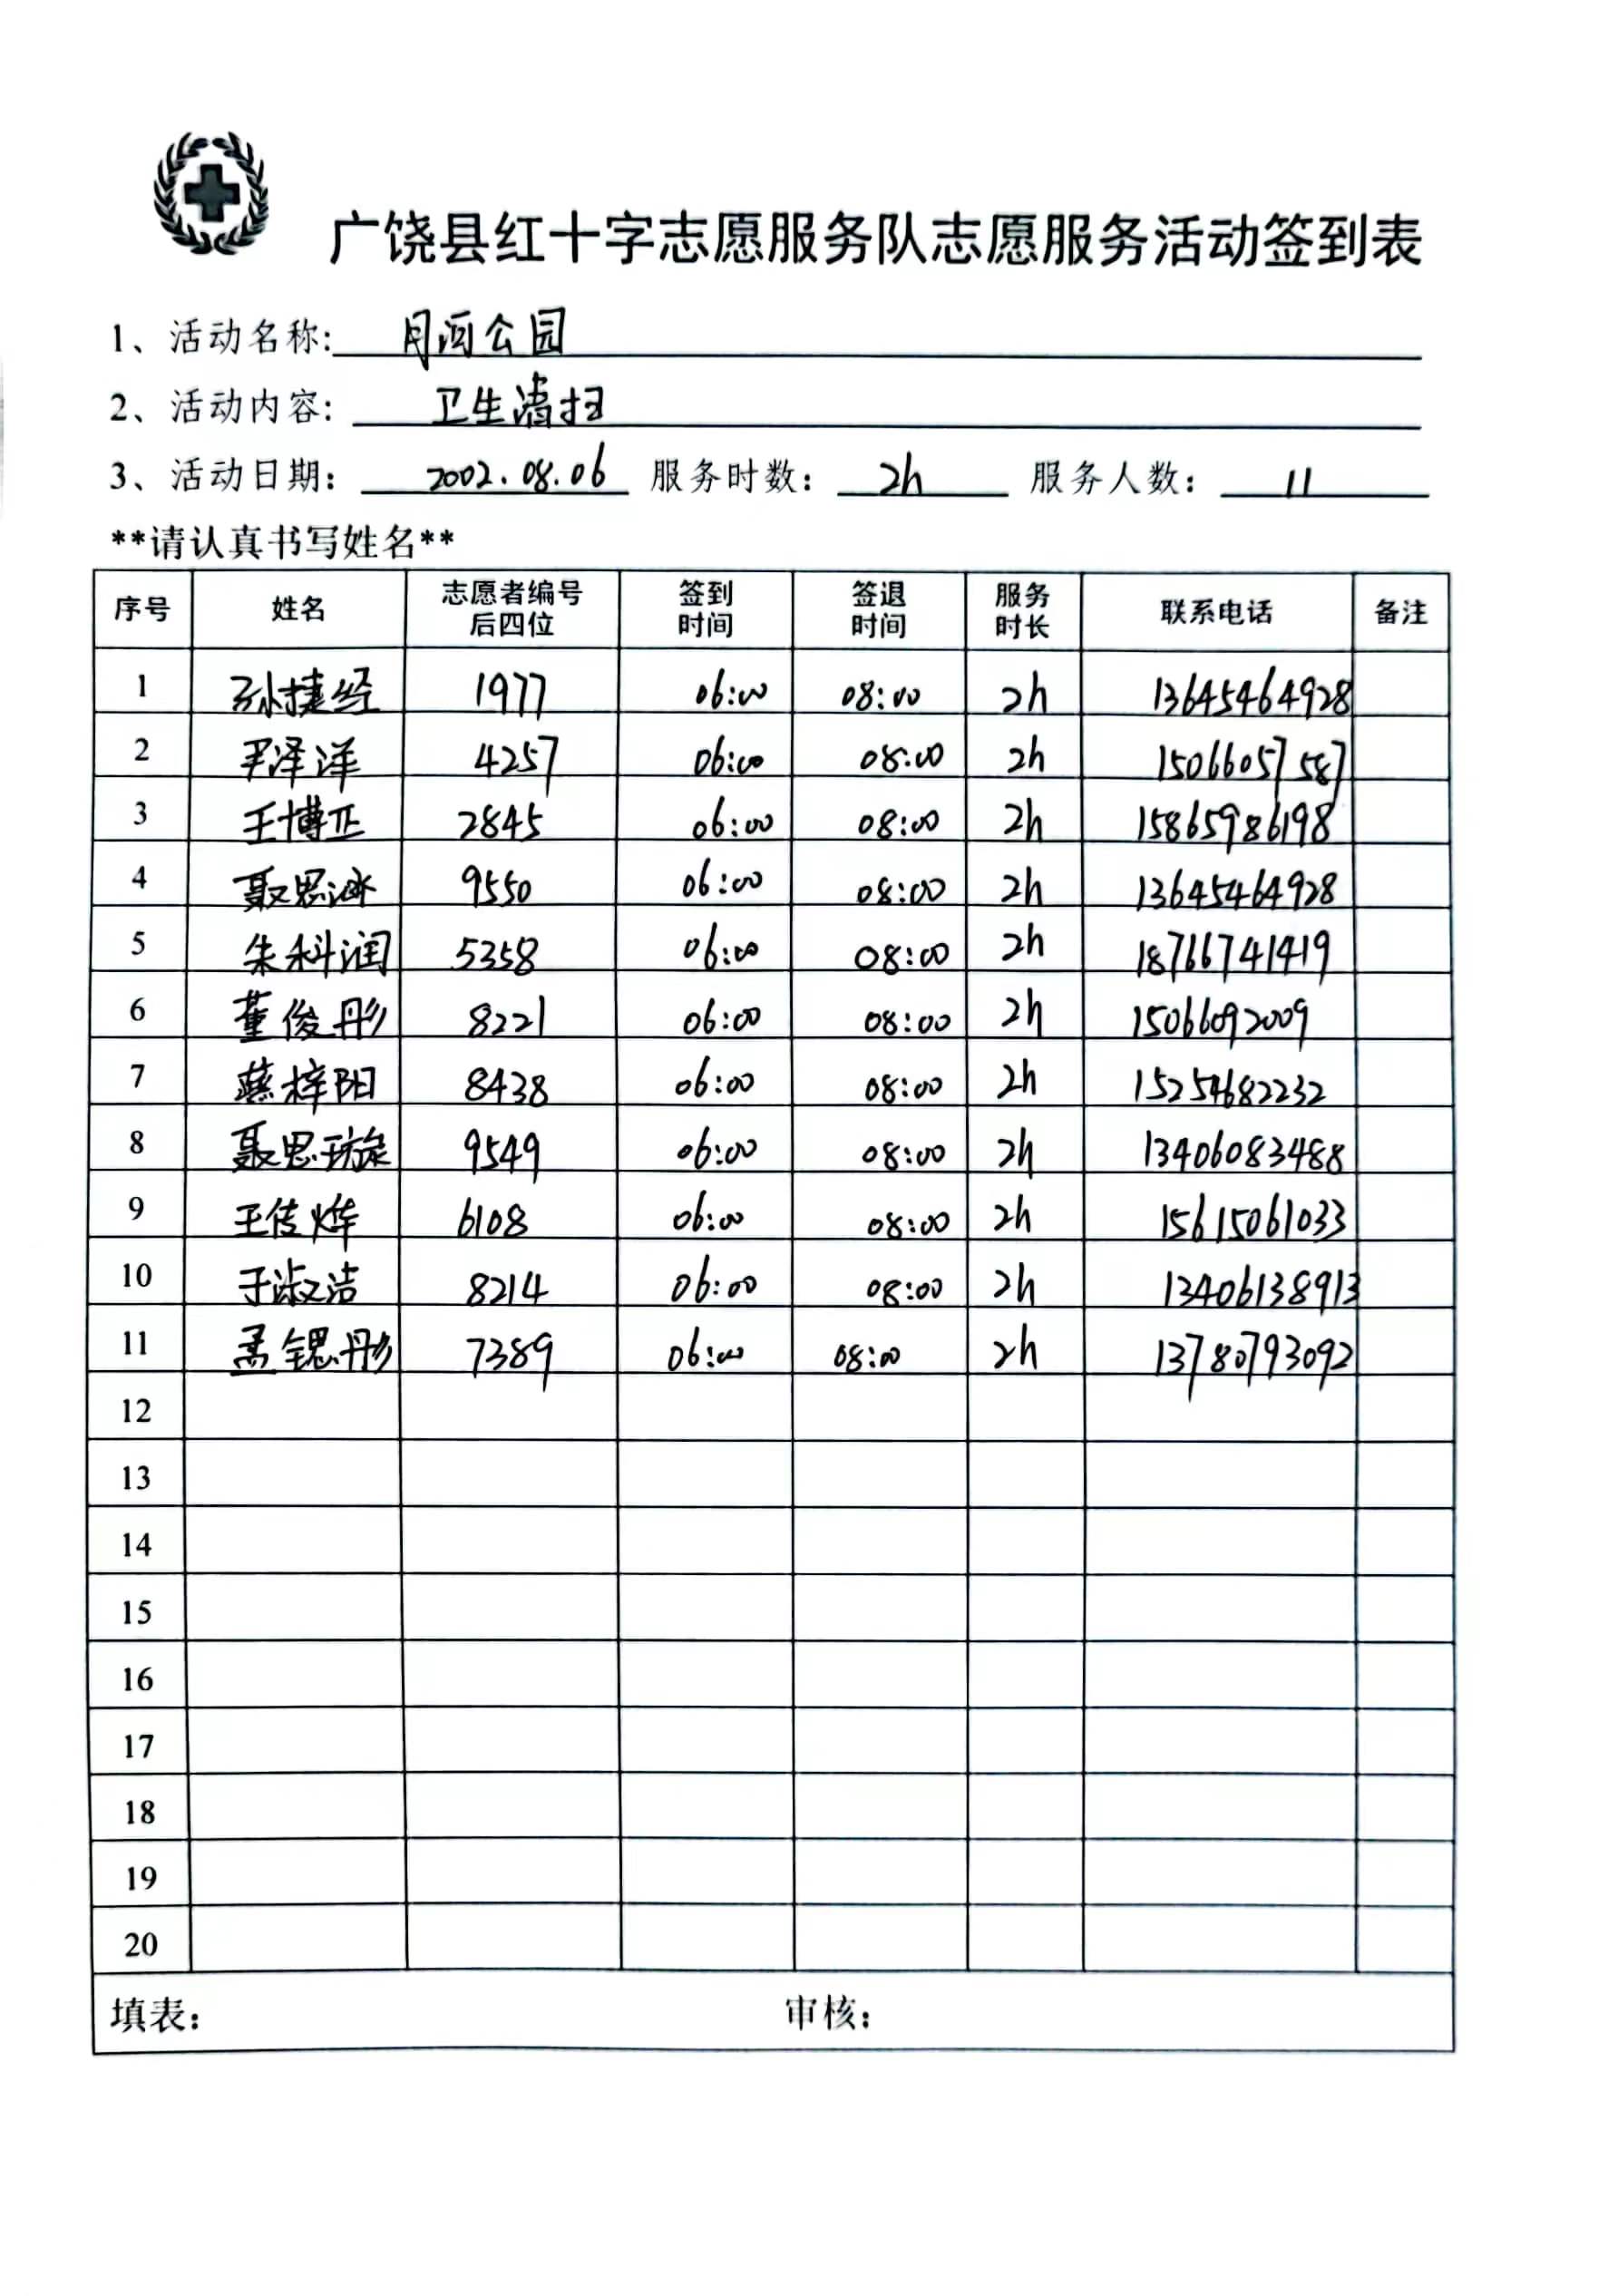 广饶县红十字志愿服务队志愿服务活动签到表
1、活动名称: 月河公园
2、活动内容: 卫生清扫
3、活动日期: 2002.08.06 服务时数: 2h 服务人数: 11
**请认真书写姓名**
序号 姓名 志愿者编号后四位 签到时间 签退时间 服务时长 联系电话 备注
1 孙捷经 1977 06:00 08:00 2h 13645464928
2 尹泽洋 4257 06:00 08:00 2h 15066057587
3 王博正 2845 06:00 08:00 2h 15865986198
4 聂思冰 9550 06:00 08:00 2h 13645464928
5 朱科润 5358 06:00 08:00 2h 18766741419
6 董俊彤 8221 06:00 08:00 2h 15066092009
7 燕梓阳 8438 06:00 08:00 2h 15254682232
8 聂思璇 9549 06:00 08:00 2h 13406083488
9 王传烨 6108 06:00 08:00 2h 15615061033
10 于淑洁 8214 06:00 08:00 2h 13406138913
11 孟锶彤 7389 06:00 08:00 2h 13780793092
12
13
14
15
16
17
18
19
20
填表: 审核: